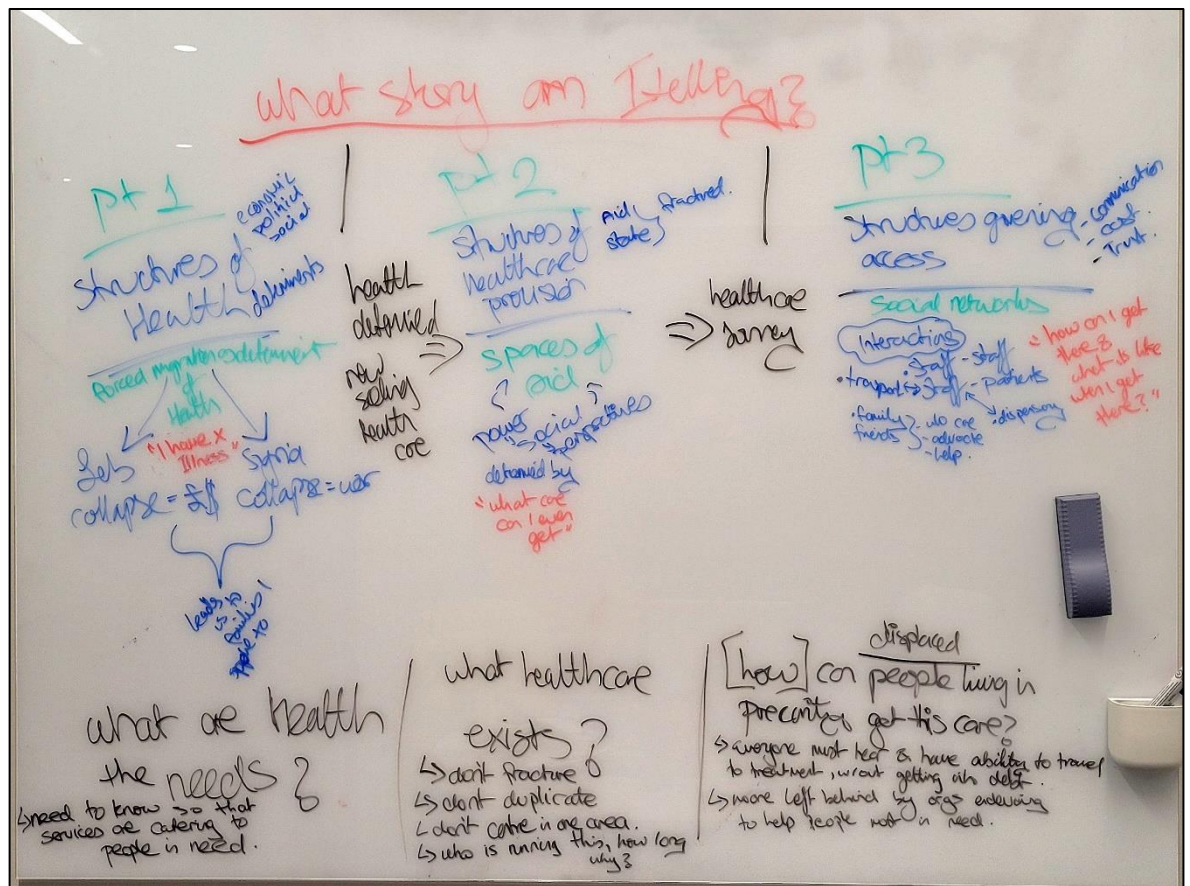 What story am I telling?
pt 1
economic
political
social
structures of
Health
determinents
Forced migration as determinent
of
Health
"I have x
Illness"
Leb
collapse = £$
Syria
collapse = war
leads
us to
families
people to
health
determined
now
seeking
health
care
⇒
pt 2
structures of
healthcare
provision
Aid
state
fractured.
spaces of
aid
power
"social
perspectives
determined by
"what care
can I even
get"
⇒
healthcare
pt 3
structures governing
access
- comunication
- cost
- Trust.
social networks
Interactions
• staff - staff
• transport → staff - patients
dispensary
• family
friends
- who care
- advocate
- help.
"how can I get
there &
what is it like
when I get
there?"
what are health
the needs?
↳ need to know so that
services are catering to
people in need.
what healthcare
exists?
↳ don't fracture
↳ dont duplicate
↳ don't centre in one area.
↳ who is running this, how long
why?
displaced
[how] can people living in
precarity get this care?
↳ everyone must hear & have ability to travel
to treatment, w/out getting into debt.
↳ no one left behind by orgs
to help people most in need.